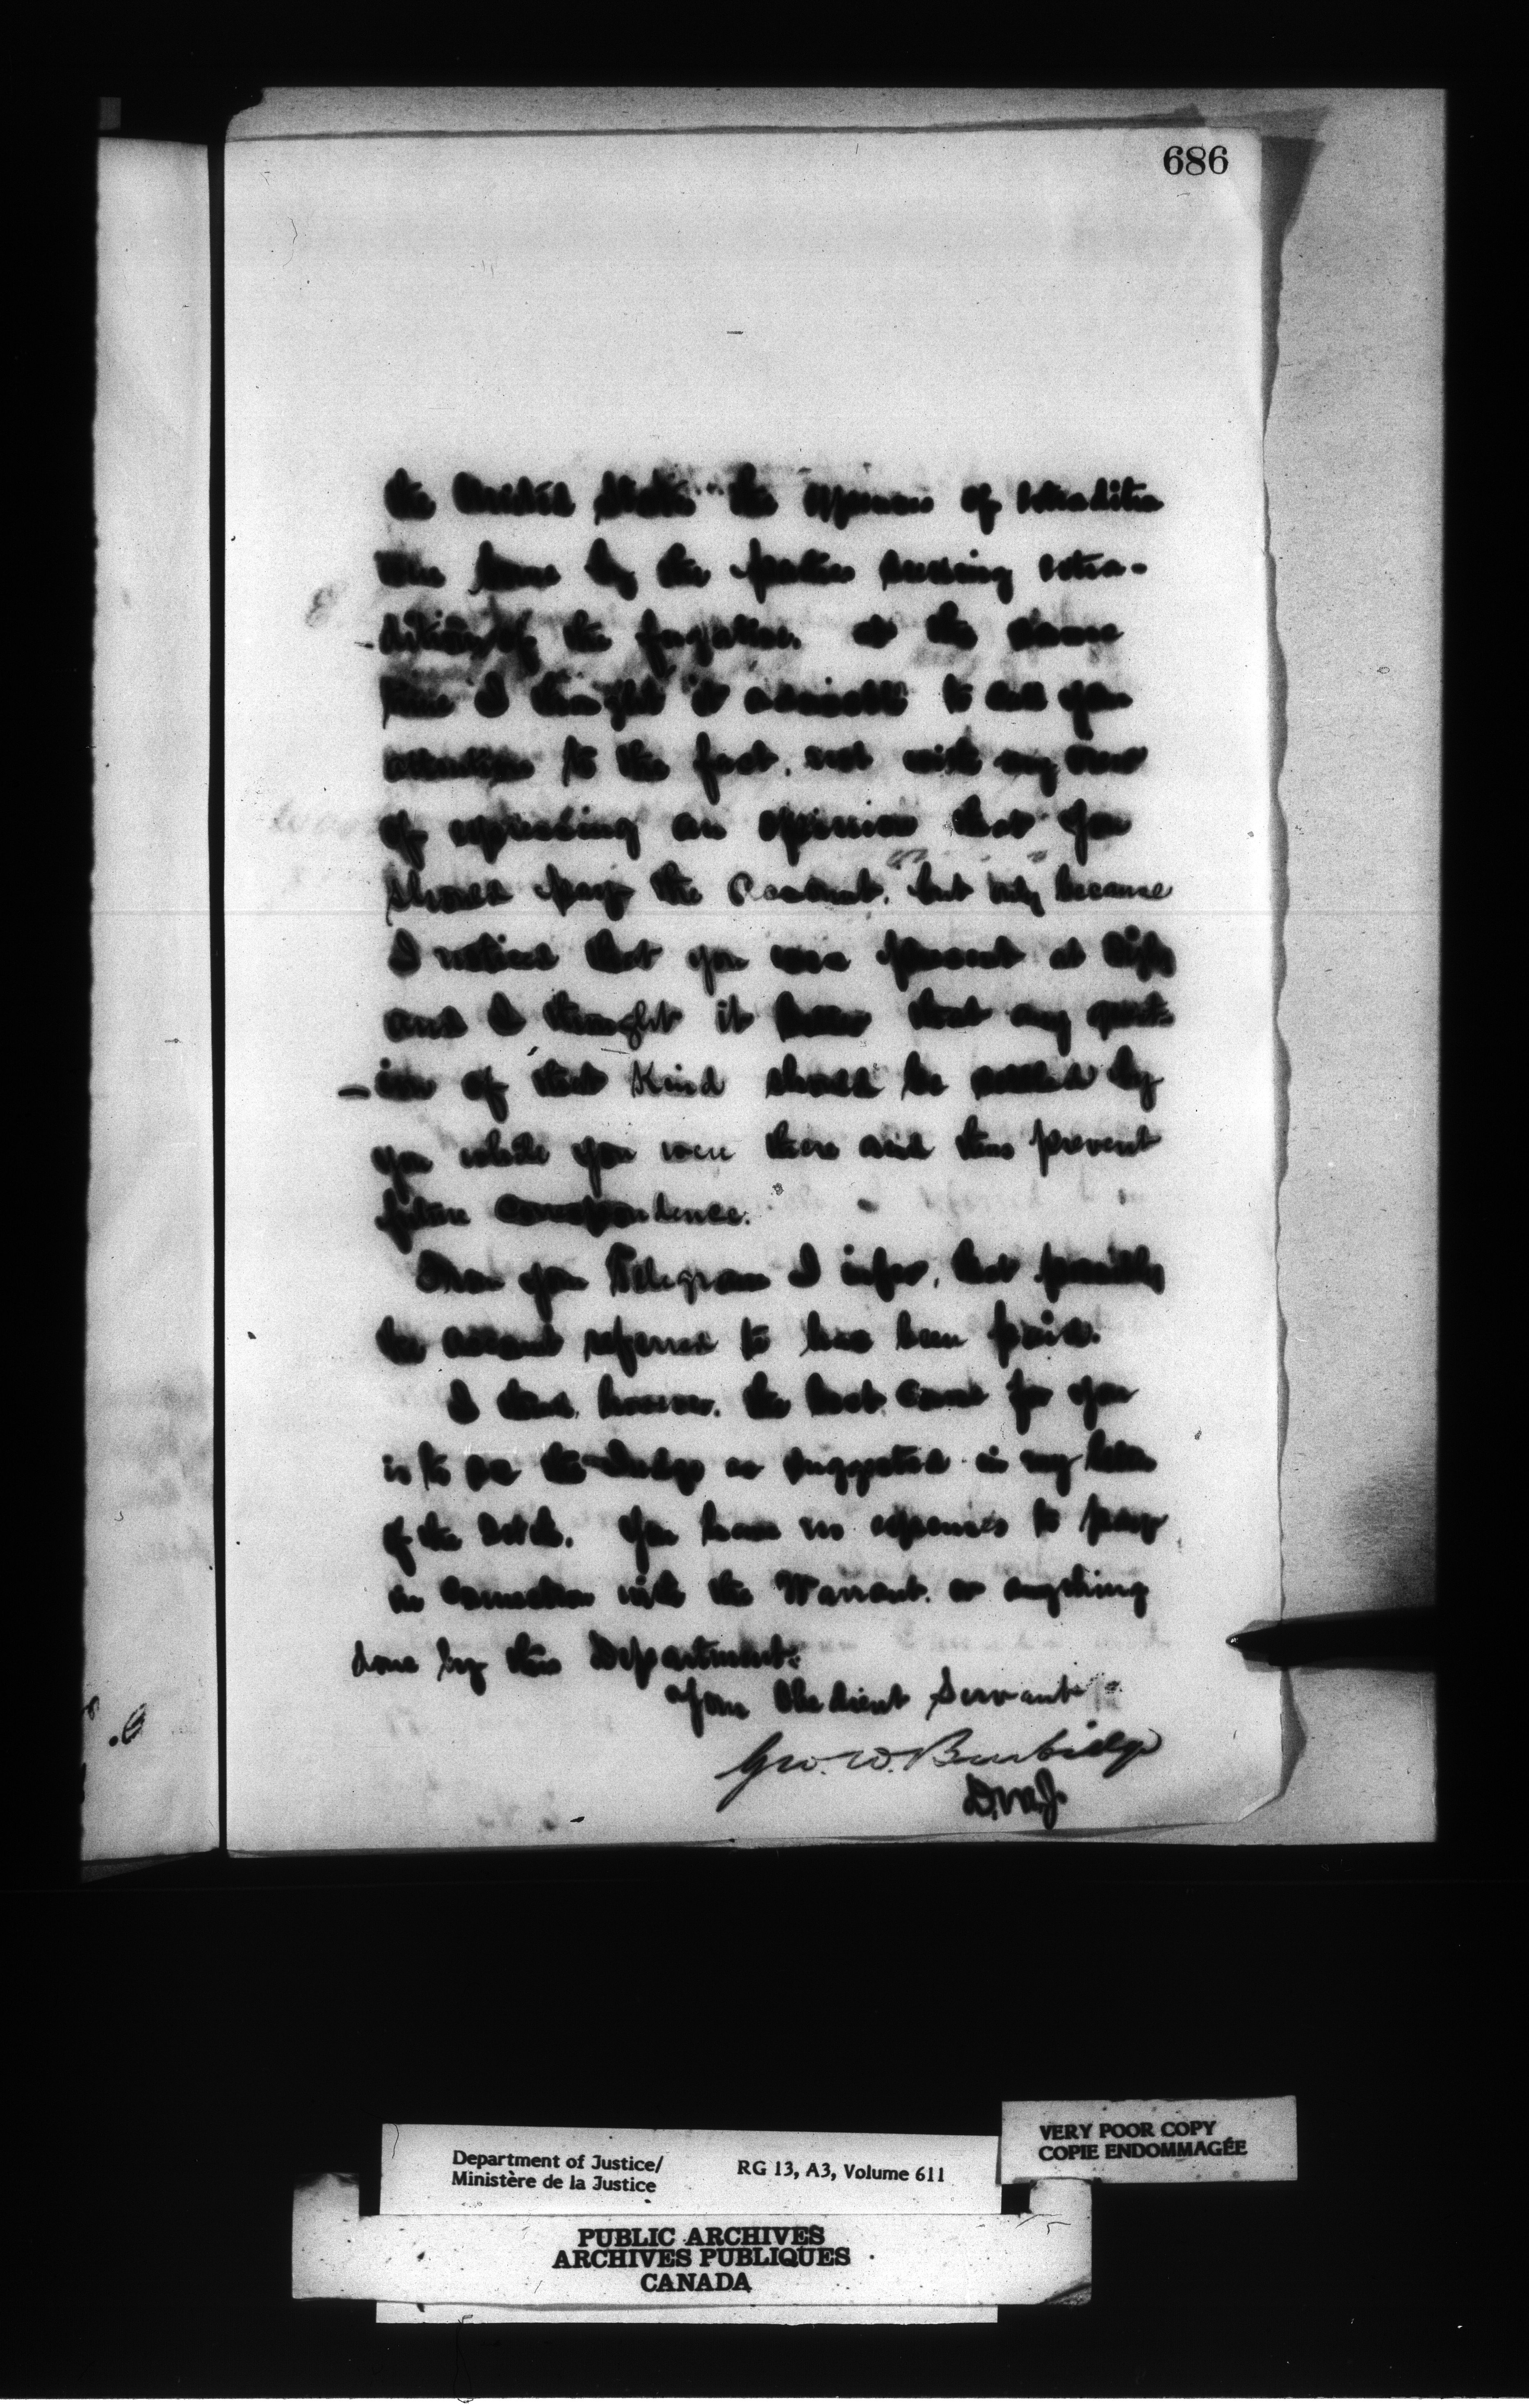 686
the United States the expenses of extradition
are borne by the parties seeking extra-
dition of the fugitive. at the same
time I thought it advisable to call your
attention to the fact, not with any view
of expressing an opinion that you
should pay the account, but only because
I noticed that you were present at
and I thought it better that any quest-
-ion of that Kind should be settled by
you while you were there and thus prevent
future correspondence.
From your Telegram I infer, that possibly
the account referred to has been paid.
I think, however, the best course for you
is to see the Judge as suggested in my letter
of the You have no expenses to pay
in connection with the Warrant. or anything
done by this Department.
Your Obedient Servant
Geo. W. Burbidge
D.M.J.
Department of Justice/
Ministère de la Justice
RG 13, A3, Volume 611
VERY POOR COPY
COPIE ENDOMMAGÉE
PUBLIC ARCHIVES
ARCHIVES PUBLIQUES
CANADA